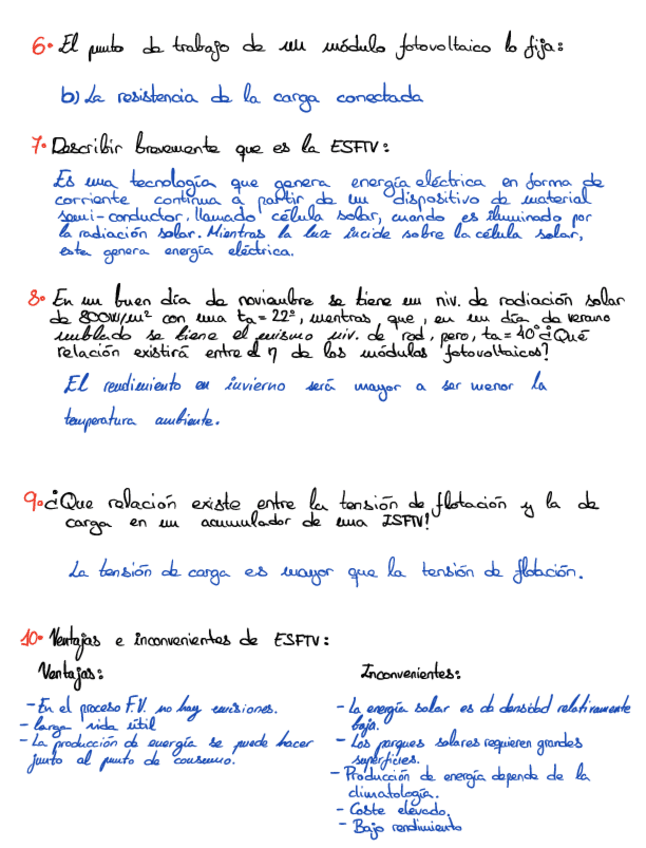 6. El punto de trabajo de un módulo fotovoltaico lo fija:
b) La resistencia de la carga conectada
7. Describir brevemente que es la ESFTV:
Es una tecnología que genera energía eléctrica en forma de
corriente continua a partir de un dispositivo de material
semi-conductor, llamado célula solar, cuando es iluminado por
la radiación solar. Mientras la luz incide sobre la célula solar,
esta genera energía eléctrica.
8. En un buen día de noviembre se tiene un niv. de radiación solar
de 800W/m² con una ta = 22º, mientras que, en un día de verano
nublado se tiene el mismo niv. de rad, pero, ta = 40º ¿Qué
relación existirá entre el η de los módulos fotovoltaicos?
El rendimiento en invierno será mayor a ser menor la
temperatura ambiente.
9. ¿Que relación existe entre la tensión de flotación y la de
carga en un acumulador de una ISFTV!
La tensión de carga es mayor que la tensión de flotación.
10. Ventajas e inconvenientes de ESFTV:
Ventajas:
- En el proceso F.V. no hay emisiones.
- larga vida útil
- La producción de energía se puede hacer
junto al punto de consumo.
Inconvenientes:
- La energía solar es de densidad relativamente
baja.
- Los parques solares requieren grandes
superficies.
- Producción de energía depende de la
climatología.
- Coste elevado.
- Bajo rendimiento